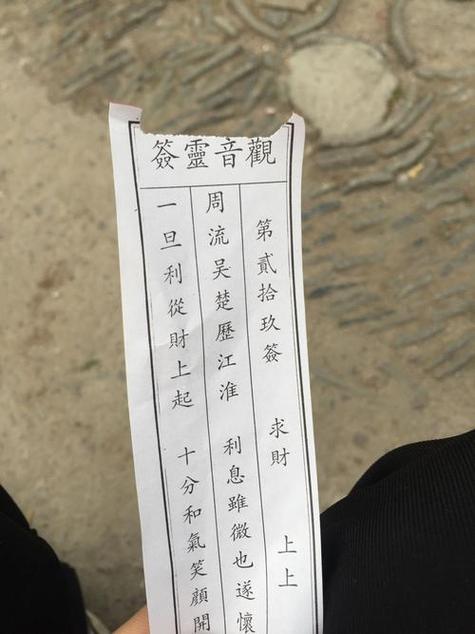 觀音靈簽
第貳拾玖簽 求財 上上
周流吴楚歷江淮 利息雖微也遂懷
一旦利從財上起 十分和氣笑顏開